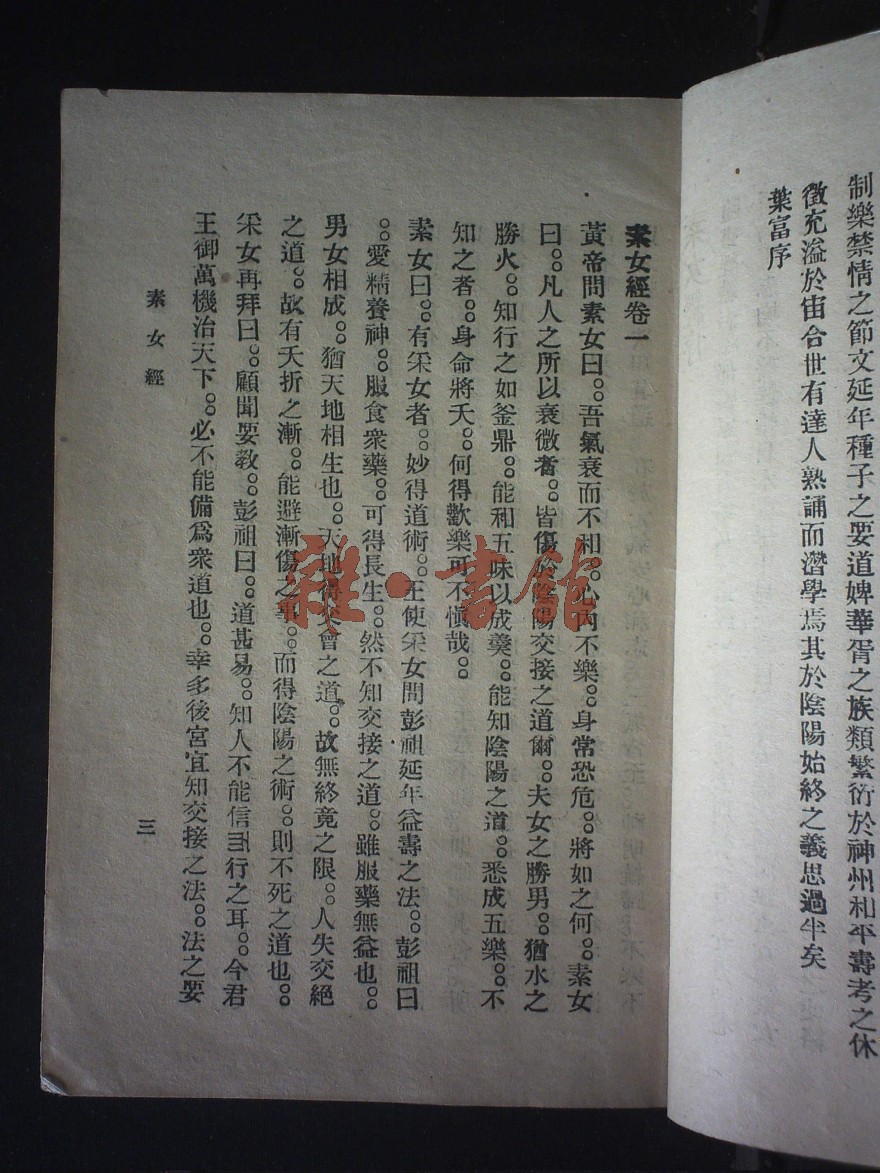 制樂禁情之節文延年種子之要道婢華胥之族類繁衍於神州和平壽考之休
徵充溢於宙合世有達人熟誦而潛學焉其於陰陽始終之義思過半矣
葉富序
素女經卷一
黃帝問素女曰。。吾氣衰而不和。。心內不樂。。身常恐危。。將如之何。。素女
曰。。凡人之所以衰微者。。皆傷於陰陽交接之道爾。。夫女之勝男。。猶水之
勝火。。知行之如釜鼎。。能和五味以成羹。。能知陰陽之道。。悉成五樂。。不
知之者。。身命將夭。。何得歡樂可不慎哉。。
素女曰。。有采女者。。妙得道術。。王使采女問彭祖延年益壽之法。。彭祖曰
。。愛精養神。。服食眾藥。。可得長生。。然不知交接之道。。雖服藥無益也。。
男女相成。。猶天地相生也。。天地得交會之道。。故無終竟之限。。人失交絕
之道。。故有夭折之漸。。能避漸傷之事。。而得陰陽之術。。則不死之道也。。
采女再拜曰。。願聞要教。。彭祖曰。。道甚易。。知人不能信而行之耳。。今君
王御萬機治天下。。必不能備為眾道也。。幸多後宮宜知交接之法。。法之要
素女經
三
雜·書館